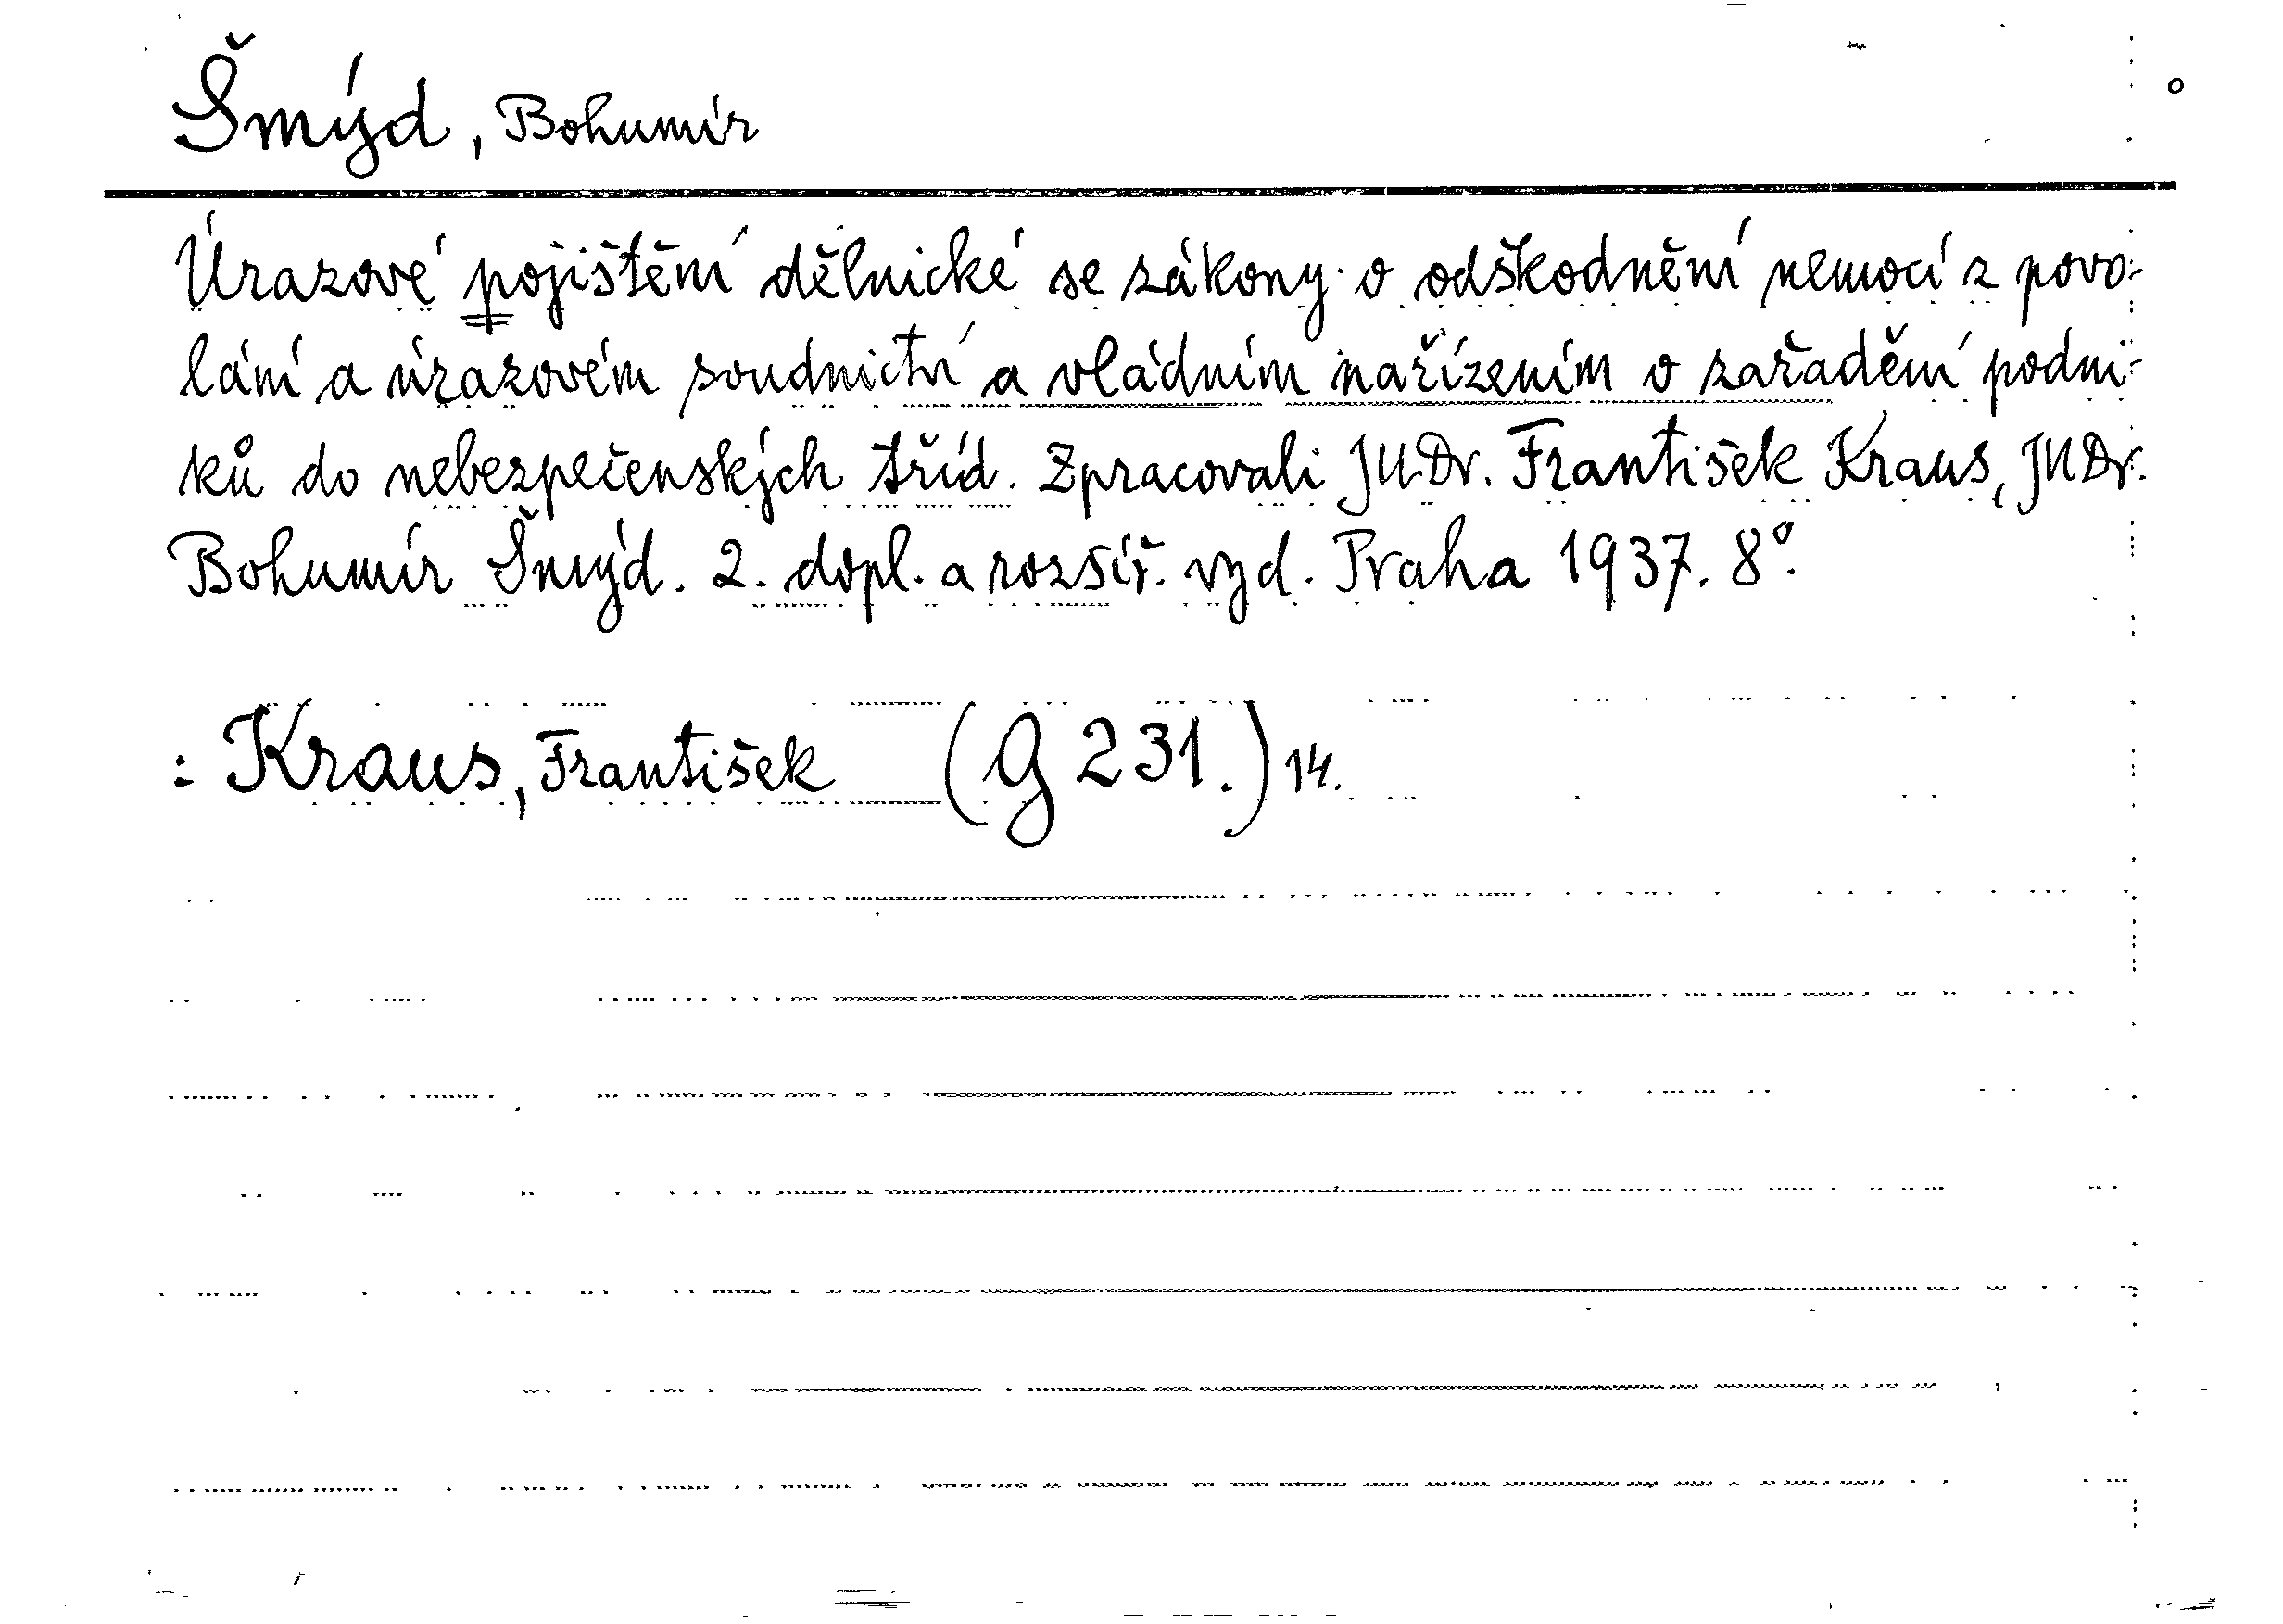 Šmýd, Bohumír
Úrazové pojištění dělnické se zákony o odškodnění nemocí z povo-
lání a úrazovém soudnictví a vládním nařízením o zařadění podni-
ků do nebezpečenských tříd. Zpracovali JUDr. František Kraus, JUDr.
Bohumír Šmýd. 2. dopl. a rozšíř. vyd. Praha 1937. 8°.
: Kraus, František (G 231.) 14.